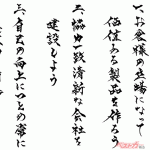 一、お客様の立場になって
価値ある製品を作ろう
二、協力一致清新な会社を
建設しよう
三、自己の向上につとめ常に